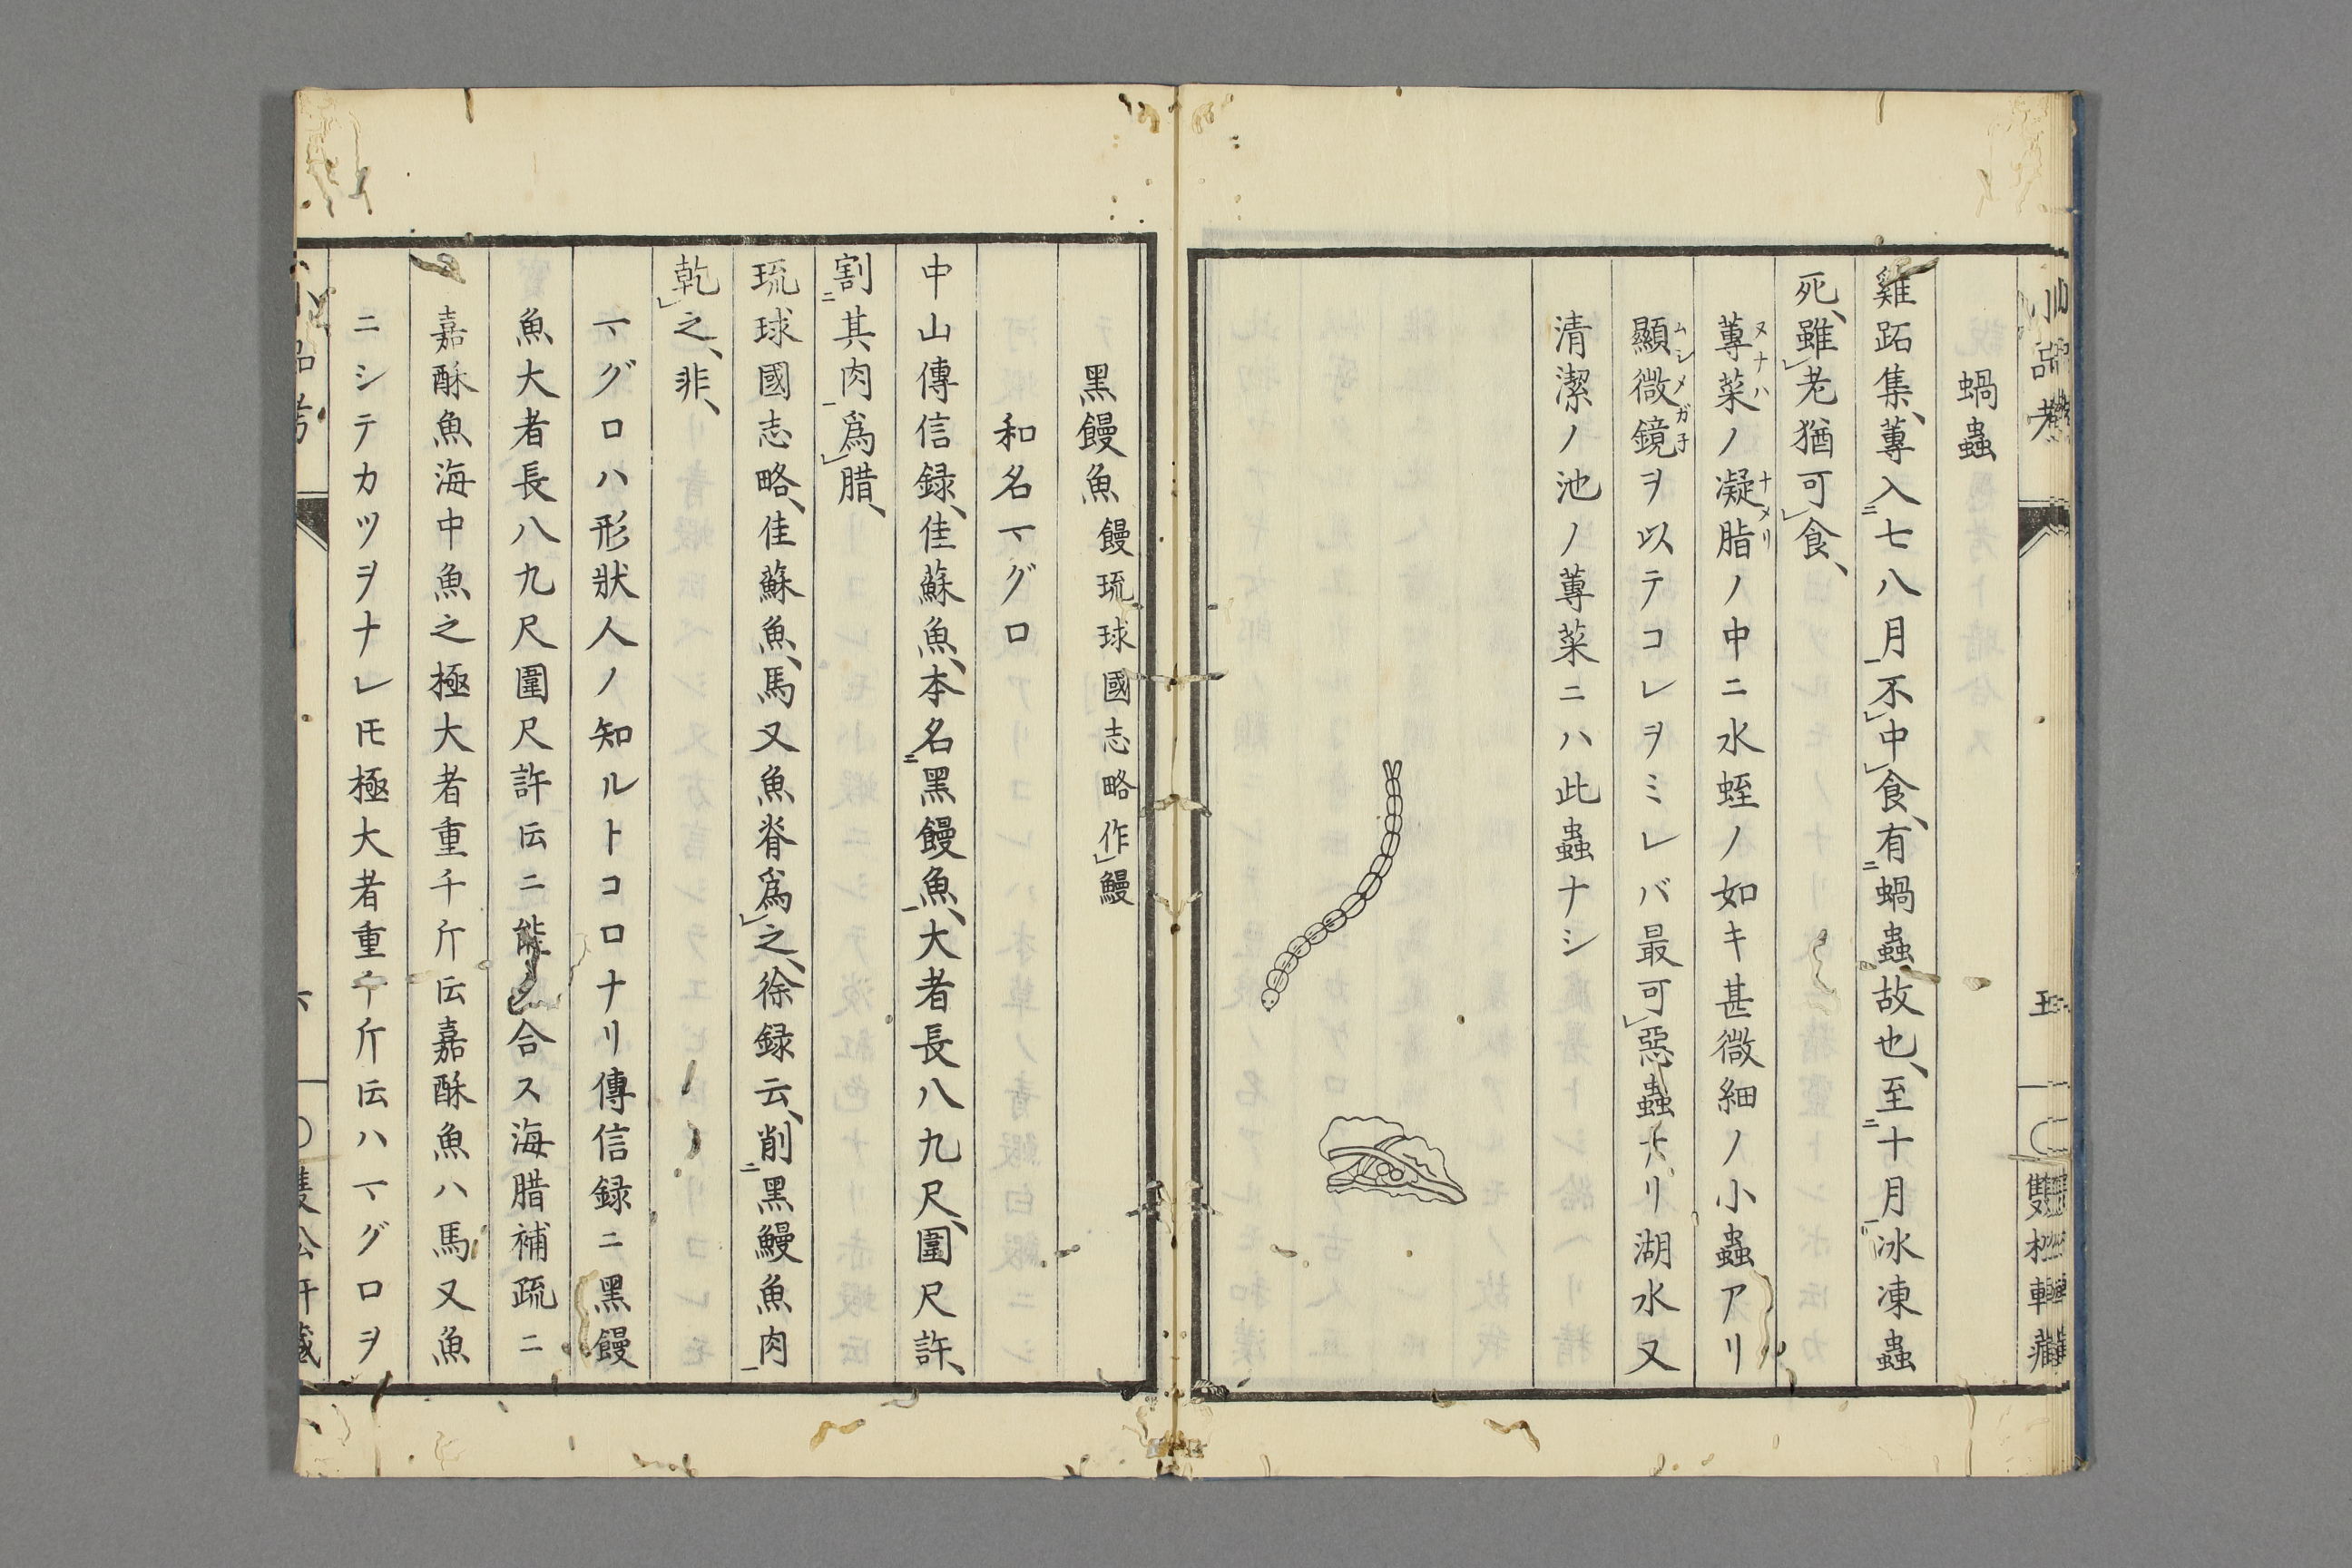 蝸蟲
雞跖集、蓴入㆓七八月㆒不㆑中㆑食、有㆓蝸蟲㆒故也、至㆓十月㆒冰凍蟲
死、雖㆑老猶可㆑食、
蓴菜ノ凝脂ノ中ニ水蛭ノ如キ甚微細ノ小蟲アリ
ヌナハ
ナメリ
顯微鏡ヲ以テコレヲミレバ最可㆑惡蟲ナリ湖水又
ムシメガ子
清潔ノ池ノ蓴菜ニハ此蟲ナシ
小品考
五
雙松軒藏
黑饅魚 饅琉球國志略作㆑鰻
和名マグロ
中山傳信録、佳蘇魚、本名㆓黑饅魚㆒、大者長八九尺、圍尺許、
割㆓其肉㆒爲㆑腊、
琉球國志略、佳蘇魚、馬又魚脊爲㆑之、徐録云、削㆓黑鰻魚肉㆒
乾㆑之、非、
マグロハ形狀人ノ知ルトコロナリ傳信録ニ黑饅
魚大者長八九尺圍尺許ト云ニ能ク合ス海腊補疏ニ
嘉酥魚海中魚之極大者重千斤ト云嘉酥魚ハ馬又魚
ニシテカツヲナレ𪜈極大者重千斤ト云ハマグロヲ